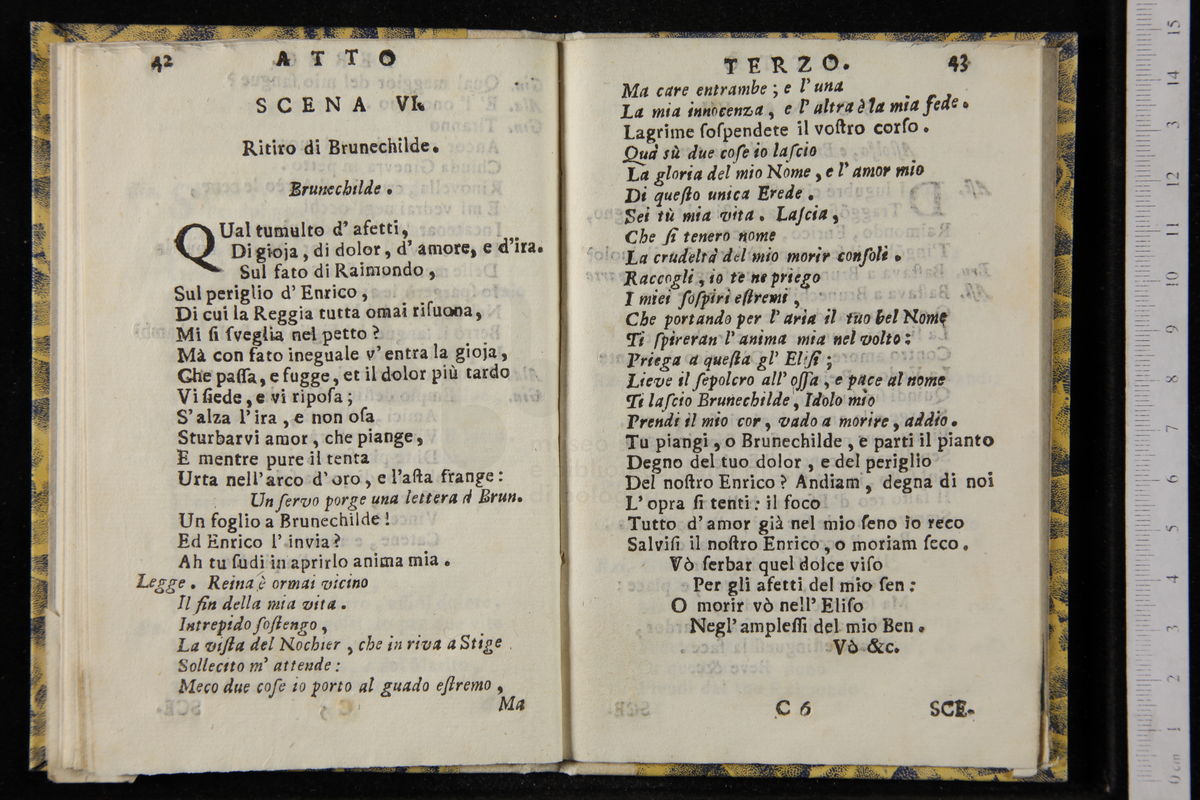 42 ATTO
SCENA VI.
Ritiro di Brunechilde.
Brunechilde.
QUal tumulto d' afetti,
Di gioja, di dolor, d' amore, e d'ira.
Sul fato di Raimondo,
Sul periglio d' Enrico,
Di cui la Reggia tutta omai risuona,
Mi si sveglia nel petto?
Mà con fato ineguale v' entra la gioja,
Che passa, e fugge, et il dolor più tardo
Vi siede, e vi riposa;
S' alza l' ira, e non osa
Sturbarvi amor, che piange,
E mentre pure il tenta
Urta nell' arco d' oro, e l'asta frange:
Un servo porge una lettera à Brun.
Un foglio a Brunechilde!
Ed Enrico l' invia?
Ah tu sudi in aprirlo anima mia.
Legge. Reina è ormai vicino
Il fin della mia vita.
Intrepido sostengo,
La vista del Nochier, che in riva a Stige
Sollecito m' attende:
Meco due cose io porto al guado estremo,
Ma
TERZO. 43
Ma care entrambe; e l' una
La mia innocenza, e l' altra è la mia fede.
Lagrime sospendete il vostro corso.
Quà sù due cose io lascio
La gloria del mio Nome, e l' amor mio
Di questo unica Erede.
Sei tù mia vita. Lascia,
Che sì tenero nome
La crudeltà del mio morir consoli.
Raccogli, io te ne priego
I miei sospiri estremi,
Che portando per l' aria il tuo bel Nome
Ti spireran l' anima mia nel volto:
Priega a questa gl' Elisi;
Lieve il sepolcro all' ossa, e pace al nome
Ti lascio Brunechilde, Idolo mio
Prendi il mio cor, vado a morire, addio.
Tu piangi, o Brunechilde, e parti il pianto
Degno del tuo dolor, e del periglio
Del nostro Enrico? Andiam, degna di noi
L' opra si tenti: il foco
Tutto d' amor già nel mio seno io reco
Salvisi il nostro Enrico, o moriam seco.
Vò serbar quel dolce viso
Per gli afetti del mio sen:
O morir vò nell' Eliso
Negl' amplessi del mio Ben.
Vò &c.
C 6 SCE-